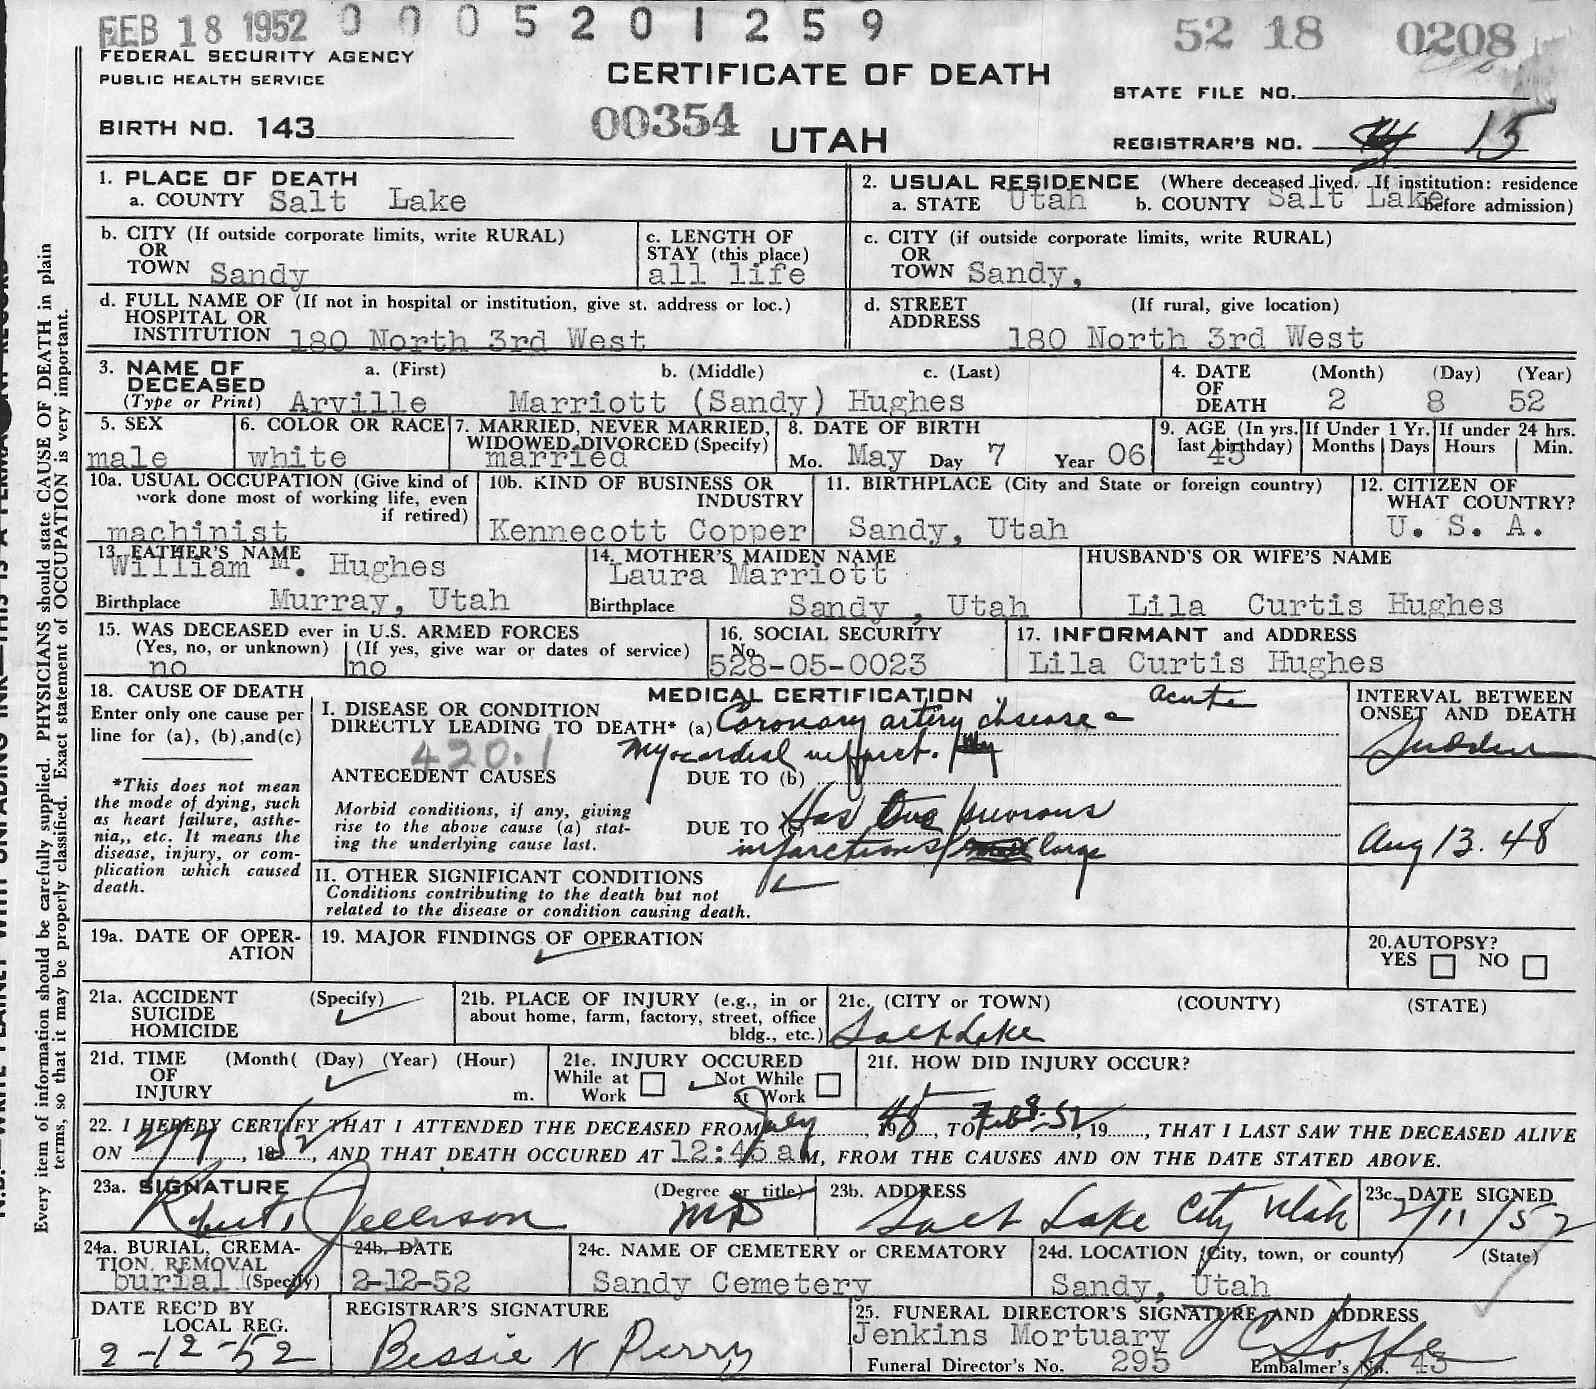 FEB 18 1952 0 0 0 5 2 0 1 2 5 9 52 18 0208
FEDERAL SECURITY AGENCY
PUBLIC HEALTH SERVICE
CERTIFICATE OF DEATH
STATE FILE NO.
BIRTH NO. 143
00354
UTAH
REGISTRAR'S NO. 15
1. PLACE OF DEATH
a. COUNTY Salt Lake
2. USUAL RESIDENCE (Where deceased lived. If institution: residence before admission)
a. STATE Utah b. COUNTY Salt Lake
b. CITY (If outside corporate limits, write RURAL)
OR
TOWN Sandy
c. LENGTH OF
STAY (this place)
all life
c. CITY (if outside corporate limits, write RURAL)
OR
TOWN Sandy,
d. FULL NAME OF (If not in hospital or institution, give st. address or loc.)
HOSPITAL OR
INSTITUTION 180 North 3rd West
d. STREET (If rural, give location)
ADDRESS
180 North 3rd West
3. NAME OF
DECEASED
(Type or Print)
a. (First) b. (Middle) c. (Last)
Arville Marriott (Sandy) Hughes
4. DATE (Month) (Day) (Year)
OF
DEATH 2 8 52
5. SEX
male
6. COLOR OR RACE
white
7. MARRIED, NEVER MARRIED,
WIDOWED, DIVORCED (Specify)
married
8. DATE OF BIRTH
Mo. May Day 7 Year 06
9. AGE (In yrs. last birthday)
45
If Under 1 Yr.
Months Days
If under 24 hrs.
Hours Min.
10a. USUAL OCCUPATION (Give kind of
work done most of working life, even
if retired)
machinist
10b. KIND OF BUSINESS OR
INDUSTRY
Kennecott Copper
11. BIRTHPLACE (City and State or foreign country)
Sandy, Utah
12. CITIZEN OF
WHAT COUNTRY?
U. S. A.
13. FATHER'S NAME
William M. Hughes
Birthplace Murray, Utah
14. MOTHER'S MAIDEN NAME
Laura Marriott
Birthplace Sandy , Utah
HUSBAND'S OR WIFE'S NAME
Lila Curtis Hughes
15. WAS DECEASED ever in U.S. ARMED FORCES
(Yes, no, or unknown) (If yes, give war or dates of service)
no no
16. SOCIAL SECURITY
No.
528-05-0023
17. INFORMANT and ADDRESS
Lila Curtis Hughes
18. CAUSE OF DEATH
Enter only one cause per
line for (a), (b),and(c)
*This does not mean
the mode of dying, such
as heart failure, asthe-
nia,, etc. It means the
disease, injury, or com-
plication which caused
death.
MEDICAL CERTIFICATION
I. DISEASE OR CONDITION
DIRECTLY LEADING TO DEATH* (a) Coronary artery disease - acute
Myocardial infarct.
420.1
ANTECEDENT CAUSES
DUE TO (b)
Morbid conditions, if any, giving
rise to the above cause (a) stat-
ing the underlying cause last.
DUE TO (c) Has two previous
infarctions large
II. OTHER SIGNIFICANT CONDITIONS
Conditions contributing to the death but not
related to the disease or condition causing death.
INTERVAL BETWEEN
ONSET AND DEATH
Sudden
Aug 13. 48
19a. DATE OF OPER-
ATION
19. MAJOR FINDINGS OF OPERATION
20.AUTOPSY?
YES NO
21a. ACCIDENT (Specify)
SUICIDE
HOMICIDE
21b. PLACE OF INJURY (e.g., in or
about home, farm, factory, street, office
bldg., etc.)
21c. (CITY or TOWN) (COUNTY) (STATE)
Salt Lake
21d. TIME (Month( (Day) (Year) (Hour)
OF
INJURY m.
21e. INJURY OCCURED
While at Work Not While at Work
21f. HOW DID INJURY OCCUR?
22. I HEREBY CERTIFY THAT I ATTENDED THE DECEASED FROM July 1948, TO Feb 8-52, 19......, THAT I LAST SAW THE DECEASED ALIVE
ON 2/7, 1952, AND THAT DEATH OCCURED AT 12:45 aM, FROM THE CAUSES AND ON THE DATE STATED ABOVE.
23a. SIGNATURE (Degree or title)
Robert Jellison MD
23b. ADDRESS
Salt Lake City Utah
23c. DATE SIGNED
2/11/52
24a. BURIAL, CREMA-
TION, REMOVAL
burial (Specify)
24b. DATE
2-12-52
24c. NAME OF CEMETERY or CREMATORY
Sandy Cemetery
24d. LOCATION (City, town, or county) (State)
Sandy, Utah
DATE REC'D BY
LOCAL REG.
2-12-52
REGISTRAR'S SIGNATURE
Bessie N Perry
25. FUNERAL DIRECTOR'S SIGNATURE AND ADDRESS
Jenkins Mortuary
Funeral Director's No. 295 Embalmer's No. 43
Every item of information should be carefully supplied. PHYSICIANS should state CAUSE OF DEATH in plain
terms, so that it may be properly classified. Exact statement of OCCUPATION is very important.